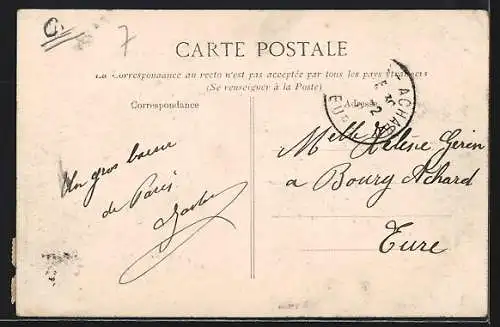 C.
7
CARTE POSTALE
La Correspondance au recto n'est pas acceptée par tous les pays étrangers
(Se renseigner à la Poste)
Correspondance
Un gros baiser
de Paris
Adresse
ACHARD
EURE
Melle Hélène Gérin
à Bourg Achard
Eure